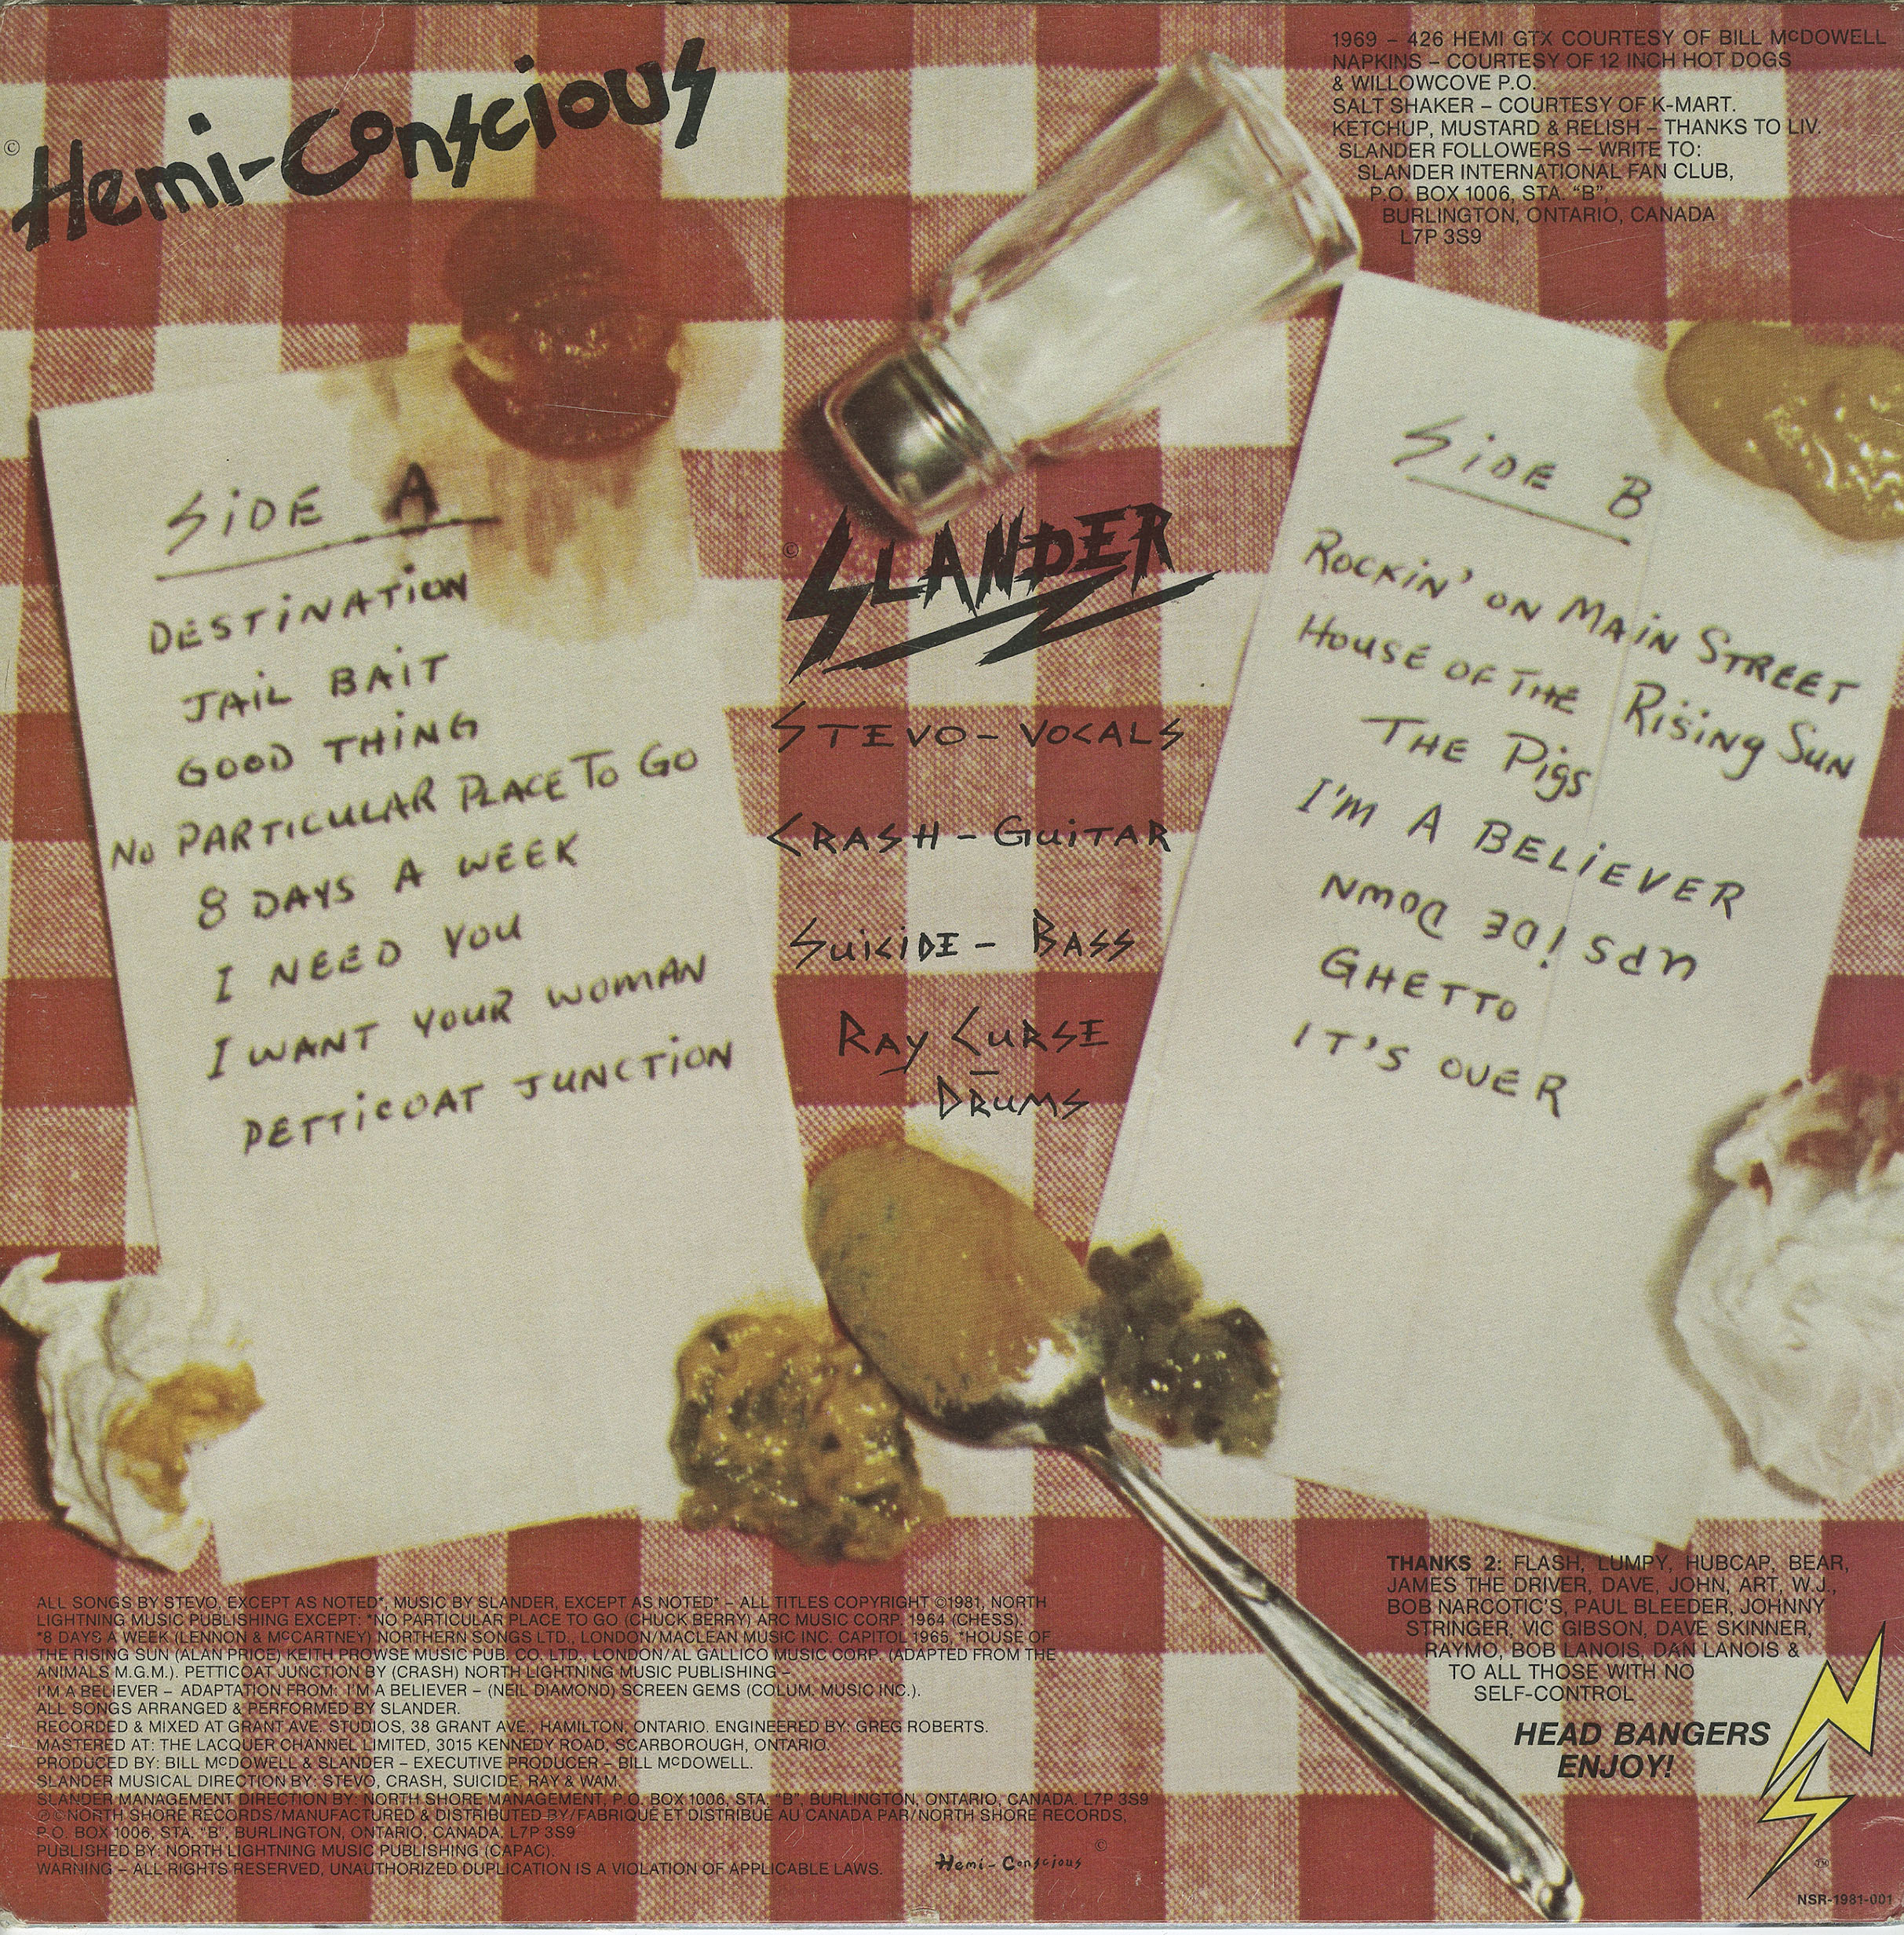 © Hemi-Conscious
1969 – 426 HEMI GTX COURTESY OF BILL McDOWELL
NAPKINS – COURTESY OF 12 INCH HOT DOGS
& WILLOWCOVE P.O.
SALT SHAKER – COURTESY OF K-MART.
KETCHUP, MUSTARD & RELISH – THANKS TO LIV.
SLANDER FOLLOWERS – WRITE TO:
SLANDER INTERNATIONAL FAN CLUB,
P.O. BOX 1006, STA. "B",
BURLINGTON, ONTARIO, CANADA
L7P 3S9
SiDE A
DESTiNATiON
JAiL BAiT
GOOD THiNG
No PARTiCULAR PLACE To Go
8 DAYS A WEEK
I NEED YOU
I WANT YOUR WOMAN
PETTiCOAT JUNCTiON
© SLANDER
STEVO – VOCALS
CRASH – GUiTAR
SUiCiDE – BASS
RAY CURSE
–
DRUMS
SiDE B
ROCKiN' ON MAiN STREET
HOUSE OF THE RiSiNg SUN
THE Pigs
I'M A BELiEVER
UPSiDE DOWN
GHETTO
IT'S OVER
ALL SONGS BY STEVO, EXCEPT AS NOTED*, MUSIC BY SLANDER, EXCEPT AS NOTED* – ALL TITLES COPYRIGHT ©1981, NORTH
LIGHTNING MUSIC PUBLISHING EXCEPT: *NO PARTICULAR PLACE TO GO (CHUCK BERRY) ARC MUSIC CORP. 1964 (CHESS).
*8 DAYS A WEEK (LENNON & McCARTNEY) NORTHERN SONGS LTD., LONDON/MACLEAN MUSIC INC. CAPITOL 1965, *HOUSE OF
THE RISING SUN (ALAN PRICE) KEITH PROWSE MUSIC PUB. CO. LTD., LONDON/AL GALLICO MUSIC CORP. (ADAPTED FROM THE
ANIMALS M.G.M.). PETTICOAT JUNCTION BY (CRASH) NORTH LIGHTNING MUSIC PUBLISHING –
I'M A BELIEVER – ADAPTATION FROM: I'M A BELIEVER – (NEIL DIAMOND) SCREEN GEMS (COLUM. MUSIC INC.).
ALL SONGS ARRANGED & PERFORMED BY SLANDER.
RECORDED & MIXED AT GRANT AVE. STUDIOS, 38 GRANT AVE., HAMILTON, ONTARIO. ENGINEERED BY: GREG ROBERTS.
MASTERED AT: THE LACQUER CHANNEL LIMITED, 3015 KENNEDY ROAD, SCARBOROUGH, ONTARIO.
PRODUCED BY: BILL McDOWELL & SLANDER – EXECUTIVE PRODUCER – BILL McDOWELL.
SLANDER MUSICAL DIRECTION BY: STEVO, CRASH, SUICIDE, RAY & WAM.
SLANDER MANAGEMENT DIRECTION BY: NORTH SHORE MANAGEMENT, P.O. BOX 1006, STA. "B", BURLINGTON, ONTARIO, CANADA. L7P 3S9
℗©NORTH SHORE RECORDS/MANUFACTURED & DISTRIBUTED BY/FABRIQUÉ ET DISTRIBUÉ AU CANADA PAR/NORTH SHORE RECORDS,
P.O. BOX 1006, STA. "B", BURLINGTON, ONTARIO, CANADA. L7P 3S9
PUBLISHED BY: NORTH LIGHTNING MUSIC PUBLISHING (CAPAC).
WARNING – ALL RIGHTS RESERVED, UNAUTHORIZED DUPLICATION IS A VIOLATION OF APPLICABLE LAWS.
Hemi-Conscious ©
THANKS 2: FLASH, LUMPY, HUBCAP, BEAR,
JAMES THE DRIVER, DAVE, JOHN, ART, W.J.,
BOB NARCOTIC'S, PAUL BLEEDER, JOHNNY
STRINGER, VIC GIBSON, DAVE SKINNER,
RAYMO, BOB LANOIS, DAN LANOIS &
TO ALL THOSE WITH NO
SELF-CONTROL
HEAD BANGERS
ENJOY!
N
S
TM
NSR-1981-001